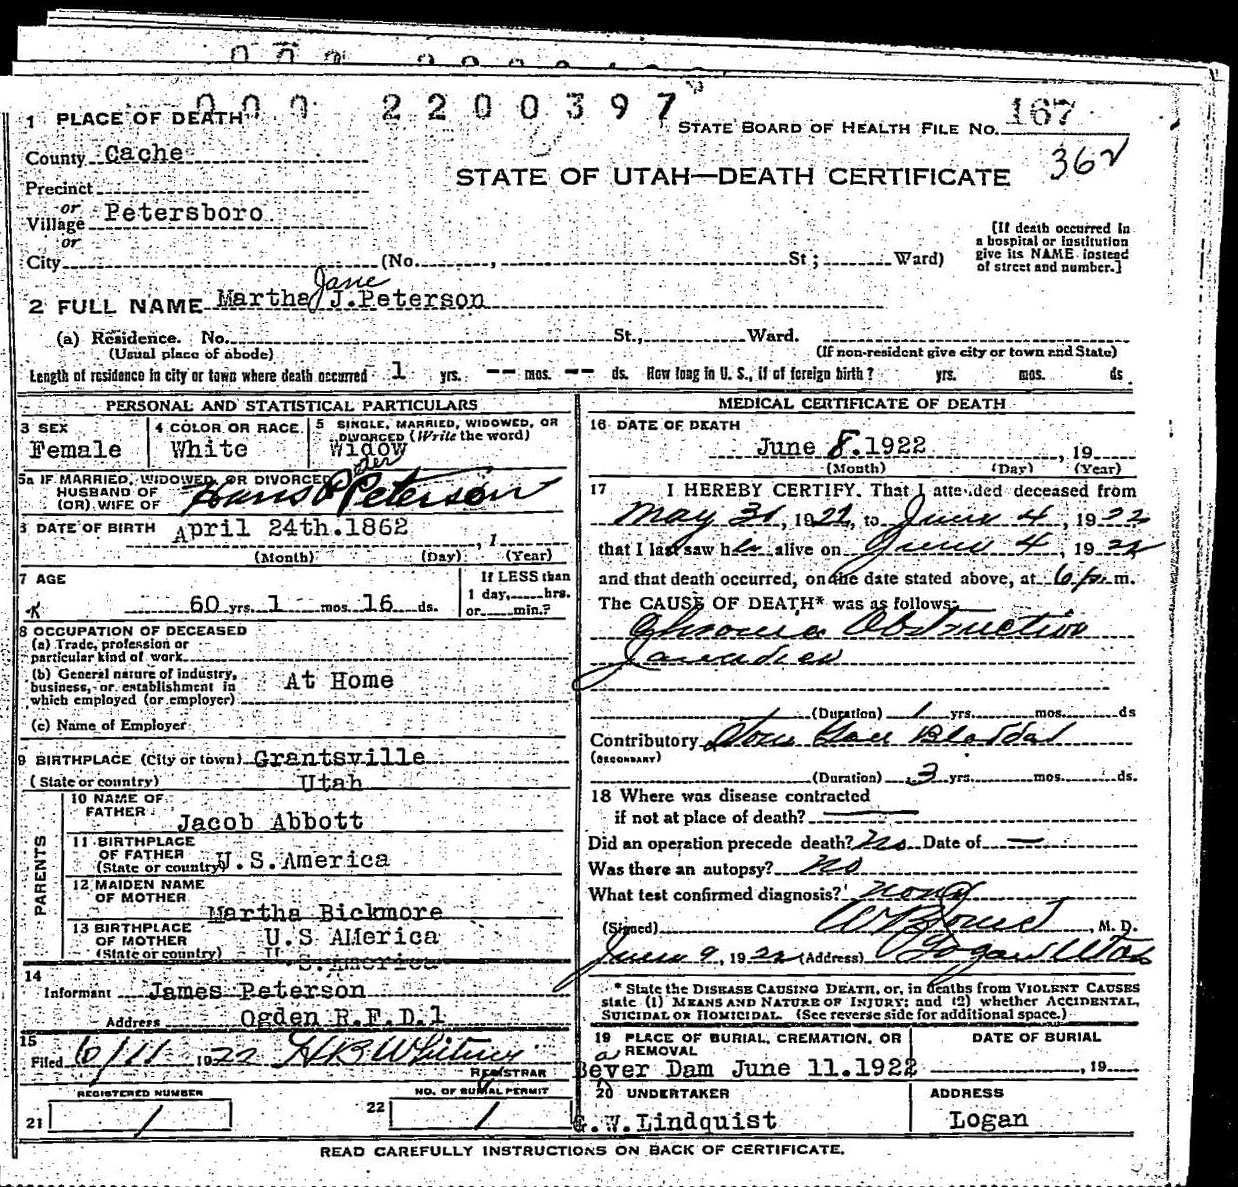 000 2200397
1 PLACE OF DEATH
STATE BOARD OF HEALTH FILE NO. 167
362
County Cache
STATE OF UTAH—DEATH CERTIFICATE
Precinct
or
Village Petersboro
or
City (No. , St; Ward)
[If death occurred in
a hospital or institution
give its NAME instead
of street and number.]
Jane
2 FULL NAME Martha J.Peterson
(a) Residence. No. St., Ward.
(Usual place of abode) (If non-resident give city or town and State)
Length of residence in city or town where death occurred 1 yrs. -- mos. -- ds. How long in U. S., if of foreign birth? yrs. mos. ds
PERSONAL AND STATISTICAL PARTICULARS
3 SEX
Female
4 COLOR OR RACE
White
5 SINGLE, MARRIED, WIDOWED, OR
DIVORCED (Write the word)
Widow
5a IF MARRIED, WIDOWED, OR DIVORCED
HUSBAND OF
(OR) WIFE OF Hans Peter Peterson
DATE OF BIRTH April 24th.1862 , 1
(Month) (Day) (Year)
7 AGE
60 yrs. 1 mos. 16 ds.
If LESS than
1 day, hrs.
or min.?
8 OCCUPATION OF DECEASED
(a) Trade, profession or
particular kind of work
(b) General nature of industry,
business, or establishment in
which employed (or employer)
At Home
(c) Name of Employer
9 BIRTHPLACE (City or town) Grantsville
(State or country) Utah
PARENTS
10 NAME OF
FATHER
Jacob Abbott
11 BIRTHPLACE
OF FATHER
(State or country) U.S.America
12 MAIDEN NAME
OF MOTHER
Martha Bickmore
13 BIRTHPLACE
OF MOTHER
(State or country)
U.S AMerica
U.S.America
14
Informant James Peterson
Address Ogden R.F.D.1
15
Filed 6/11 1922 H B Whitney
REGISTRAR
REGISTERED NUMBER
21 1
NO. OF BURIAL PERMIT
22 1
MEDICAL CERTIFICATE OF DEATH
16 DATE OF DEATH
June 8.1922 , 19
(Month) (Day) (Year)
17 I HEREBY CERTIFY. That I attended deceased from
May 31, 1922, to June 4, 1922
that I last saw her alive on June 4, 1922
and that death occurred, on the date stated above, at 6 p. m.
The CAUSE OF DEATH* was as follows:
Chronic Obstructive
Jaundice
(Duration) 1 yrs. mos. ds
Contributory Stone Gall Bladder
(SECONDARY)
(Duration) 3 yrs. mos. ds.
18 Where was disease contracted
if not at place of death? —
Did an operation precede death? No Date of —
Was there an autopsy? no
What test confirmed diagnosis? none
(Signed) , M. D.
June 9, 1922 (Address) Logan Utah
* State the DISEASE CAUSING DEATH, or, in deaths from VIOLENT CAUSES
state (1) MEANS AND NATURE OF INJURY; and (2) whether ACCIDENTAL,
SUICIDAL OR HOMICIDAL. (See reverse side for additional space.)
19 PLACE OF BURIAL, CREMATION, OR
REMOVAL
DATE OF BURIAL
a
Bever Dam June 11.1922 , 19
20 UNDERTAKER
.W.Lindquist
ADDRESS
Logan
READ CAREFULLY INSTRUCTIONS ON BACK OF CERTIFICATE.